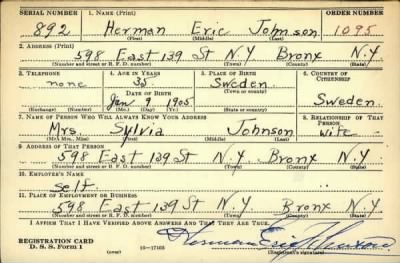 SERIAL NUMBER 1. NAME (Print) ORDER NUMBER
892 Herman Eric Johnson 1095
(First) (Middle) (Last)
2. ADDRESS (Print)
598 East 139 St N.Y. Bronx N.Y
(Number and street or R. F. D. number) (Town) (County) (State)
3. TELEPHONE 4. AGE IN YEARS 5. PLACE OF BIRTH 6. COUNTRY OF CITIZENSHIP
none 35 Sweden
DATE OF BIRTH (Town or county)
Jan 9 1905 Sweden
(Exchange) (Number) (Mo.) (Day) (Yr.) (State or country)
7. NAME OF PERSON WHO WILL ALWAYS KNOW YOUR ADDRESS 8. RELATIONSHIP OF THAT PERSON
Mrs. Sylvia Johnson wife
(Mr., Mrs., Miss) (First) (Middle) (Last)
9. ADDRESS OF THAT PERSON
598 East 139 St N.Y. Bronx N.Y
(Number and street or R. F. D. number) (Town) (County) (State)
10. EMPLOYER'S NAME
self
11. PLACE OF EMPLOYMENT OR BUSINESS
598 East 139 St N.Y. Bronx N.Y
(Number and street or R. F. D. number) (Town) (County) (State)
I AFFIRM THAT I HAVE VERIFIED ABOVE ANSWERS AND THAT THEY ARE TRUE.
REGISTRATION CARD
D. S. S. Form 1 (over) 16—17105 Herman Eric Johnson
(Registrant's signature)